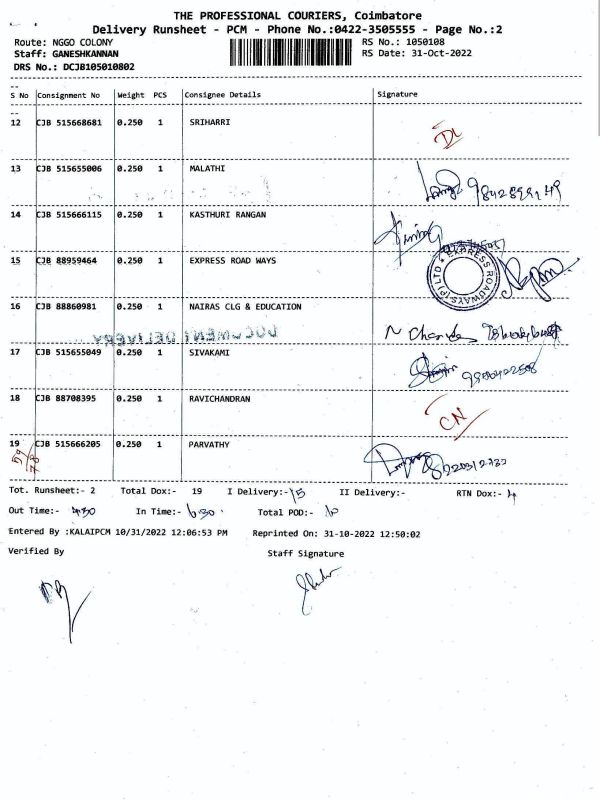 THE PROFESSIONAL COURIERS, Coimbatore
Delivery Runsheet - PCM - Phone No.:0422-3505555 - Page No.:2
Route: NGGO COLONY
RS No.: 1050108
Staff: GANESHKANNAN
RS Date: 31-Oct-2022
DRS No.: DCJB105010802
S No Consignment No Weight PCS Consignee Details Signature
12 CJB 515668681 0.250 1 SRIHARRI DL
13 CJB 515655006 0.250 1 MALATHI
14 CJB 515666115 0.250 1 KASTHURI RANGAN
15 CJB 88959464 0.250 1 EXPRESS ROAD WAYS
EXPRESS ROADWAYS (P) LTD
16 CJB 88860981 0.250 1 NAIRAS CLG & EDUCATION
DOCUMENT DELIVERY
N Chandra
17 CJB 515655049 0.250 1 SIVAKAMI
18 CJB 88708395 0.250 1 RAVICHANDRAN CN
19 CJB 515666205 0.250 1 PARVATHY
59/78
Tot. Runsheet:- 2 Total Dox:- 19 I Delivery:- 15 II Delivery:- RTN Dox:- 4
Out Time:- 4.30 In Time:- 6.30 Total POD:-
Entered By :KALAIPCM 10/31/2022 12:06:53 PM Reprinted On: 31-10-2022 12:50:02
Verified By Staff Signature